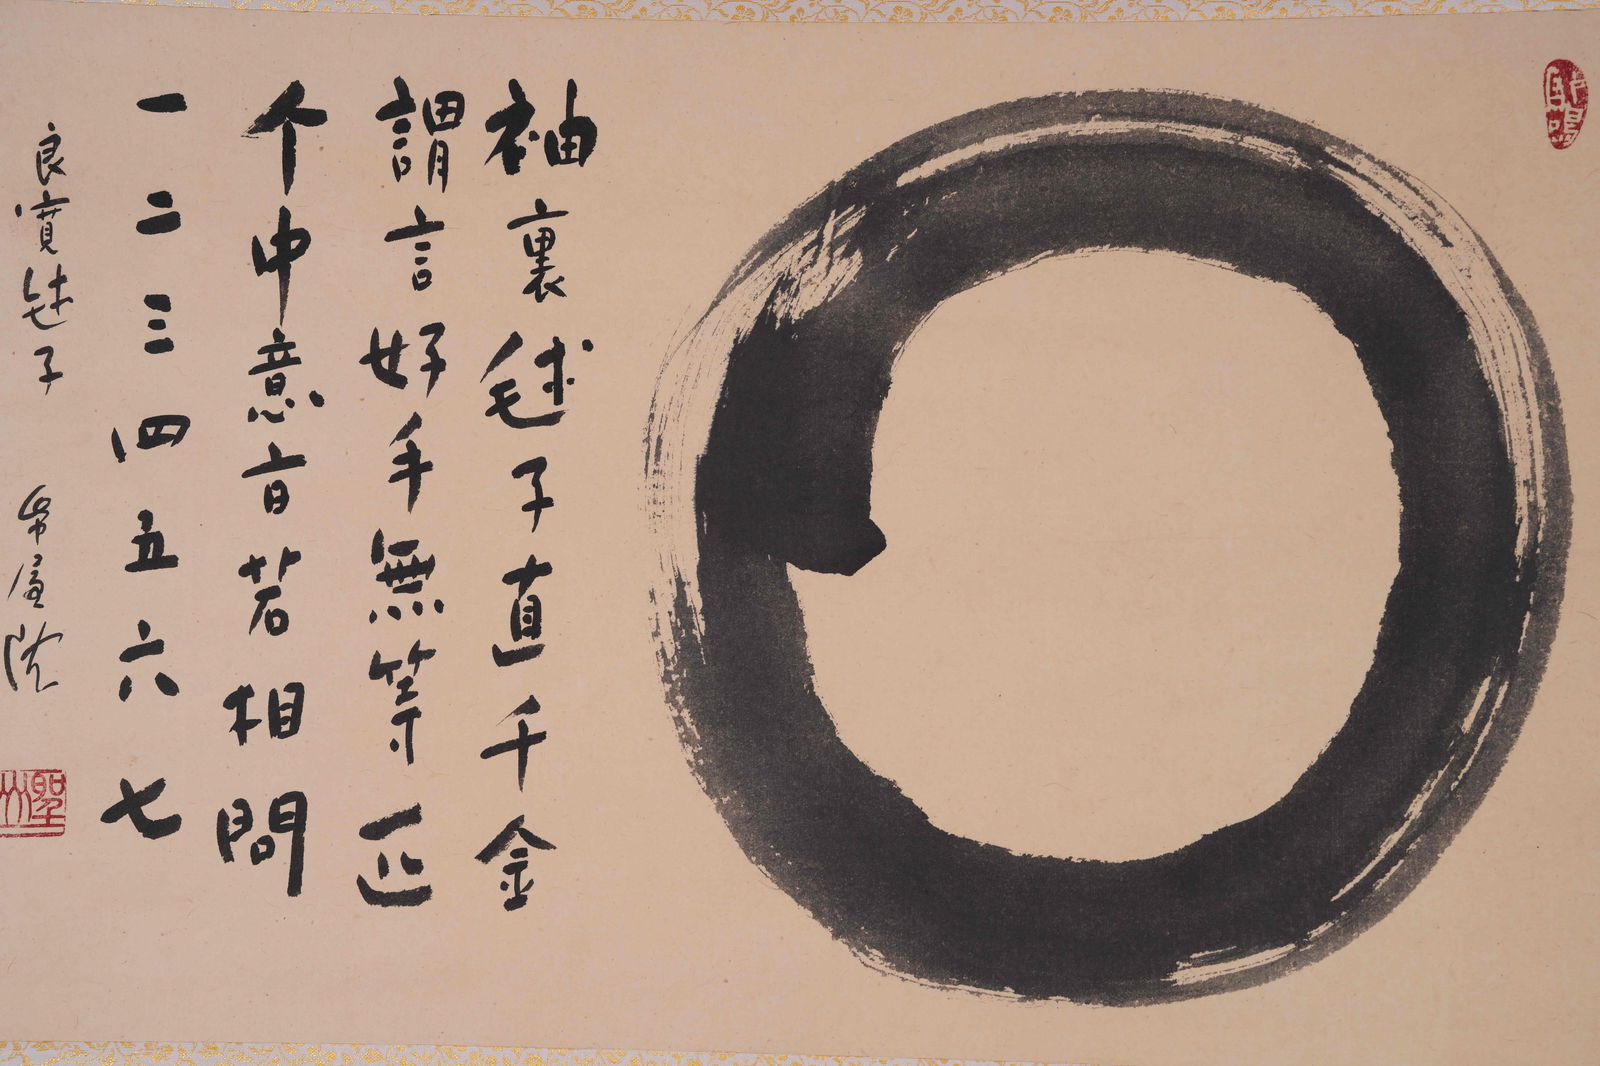 袖裏毬子直千金
謂言好手無等匹
个中意旨若相問
一二三四五六七
良寛毬子